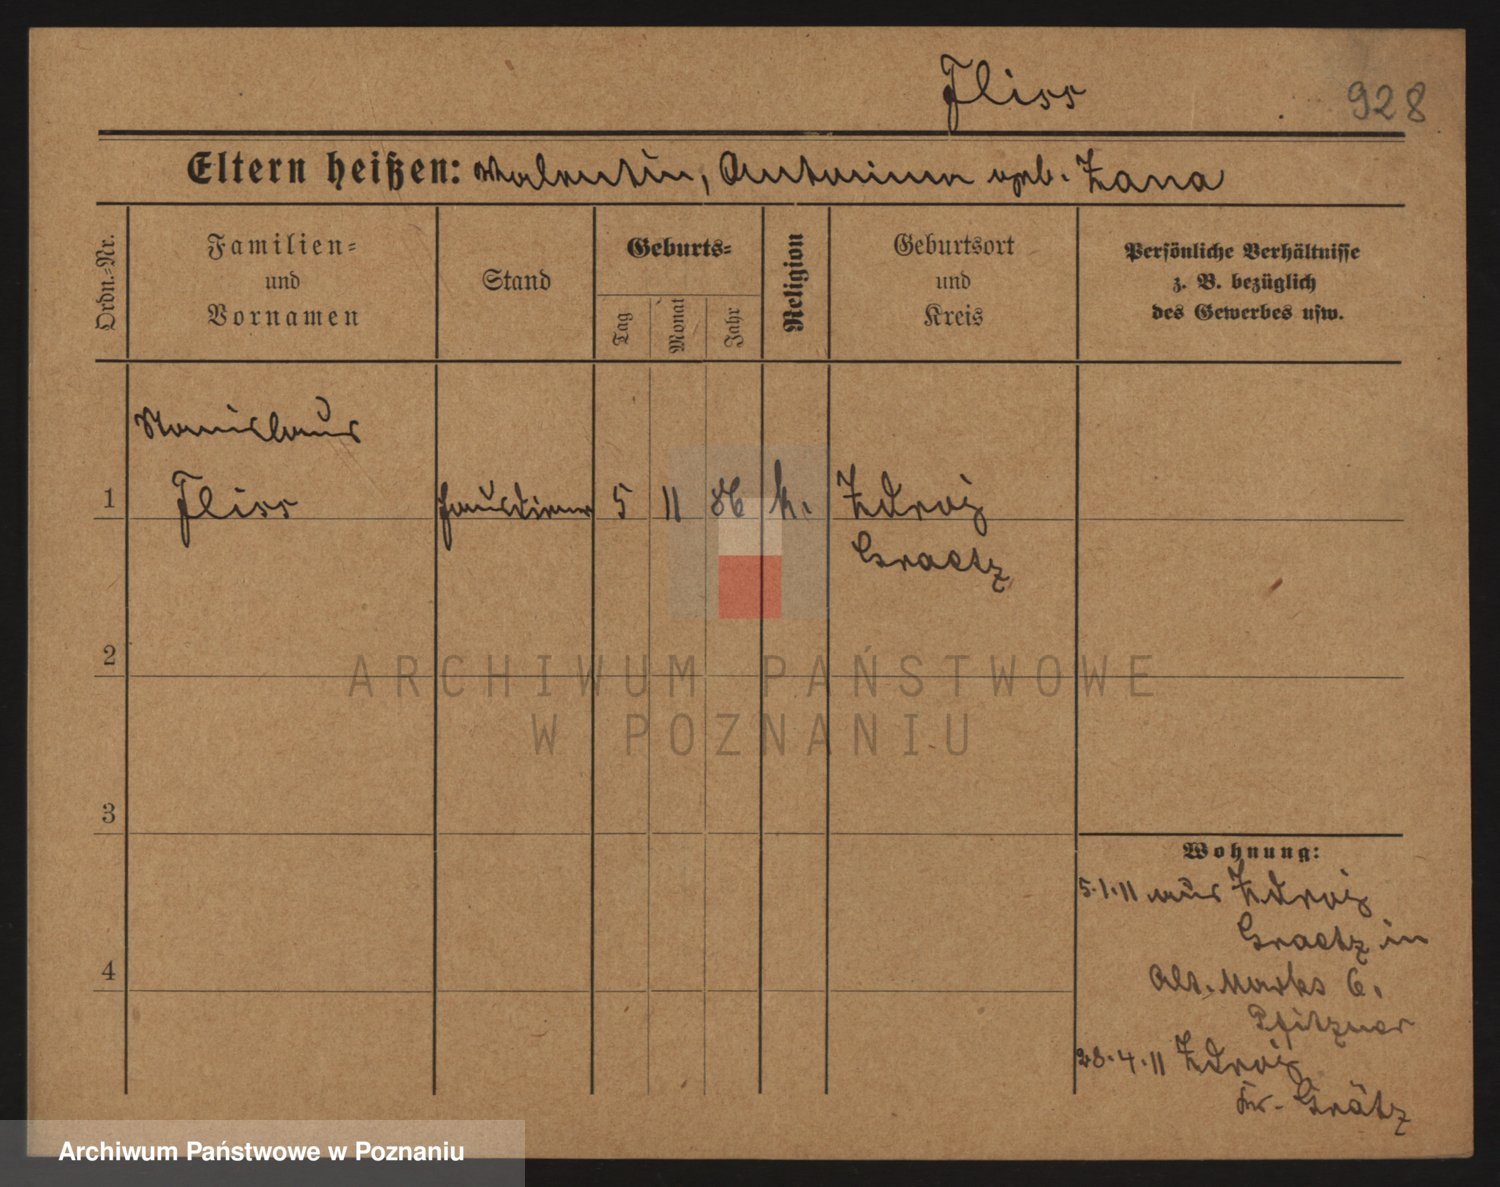 Fliss
928
Eltern heißen: Valentin, Antonina geb. Zana
Ordn.=Nr.
Familien=
und
Vornamen
Stand
Geburts=
Tag
Monat
Jahr
Religion
Geburtsort
und
Kreis
Persönliche Verhältnisse
z. B. bezüglich
des Gewerbes usw.
Stanislaus
1 Fliss Hausdiener 5 11 86 k. Zdroj
Graetz
2
ARCHIWUM PAŃSTWOWE
W POZNANIU
3
Wohnung:
5.1.11 aus Zdroj
Graetz in
4
Alt. Markt 6.
Pfitzner
28.4.11 Zdroj
Kr. Grätz
Archiwum Państwowe w Poznaniu